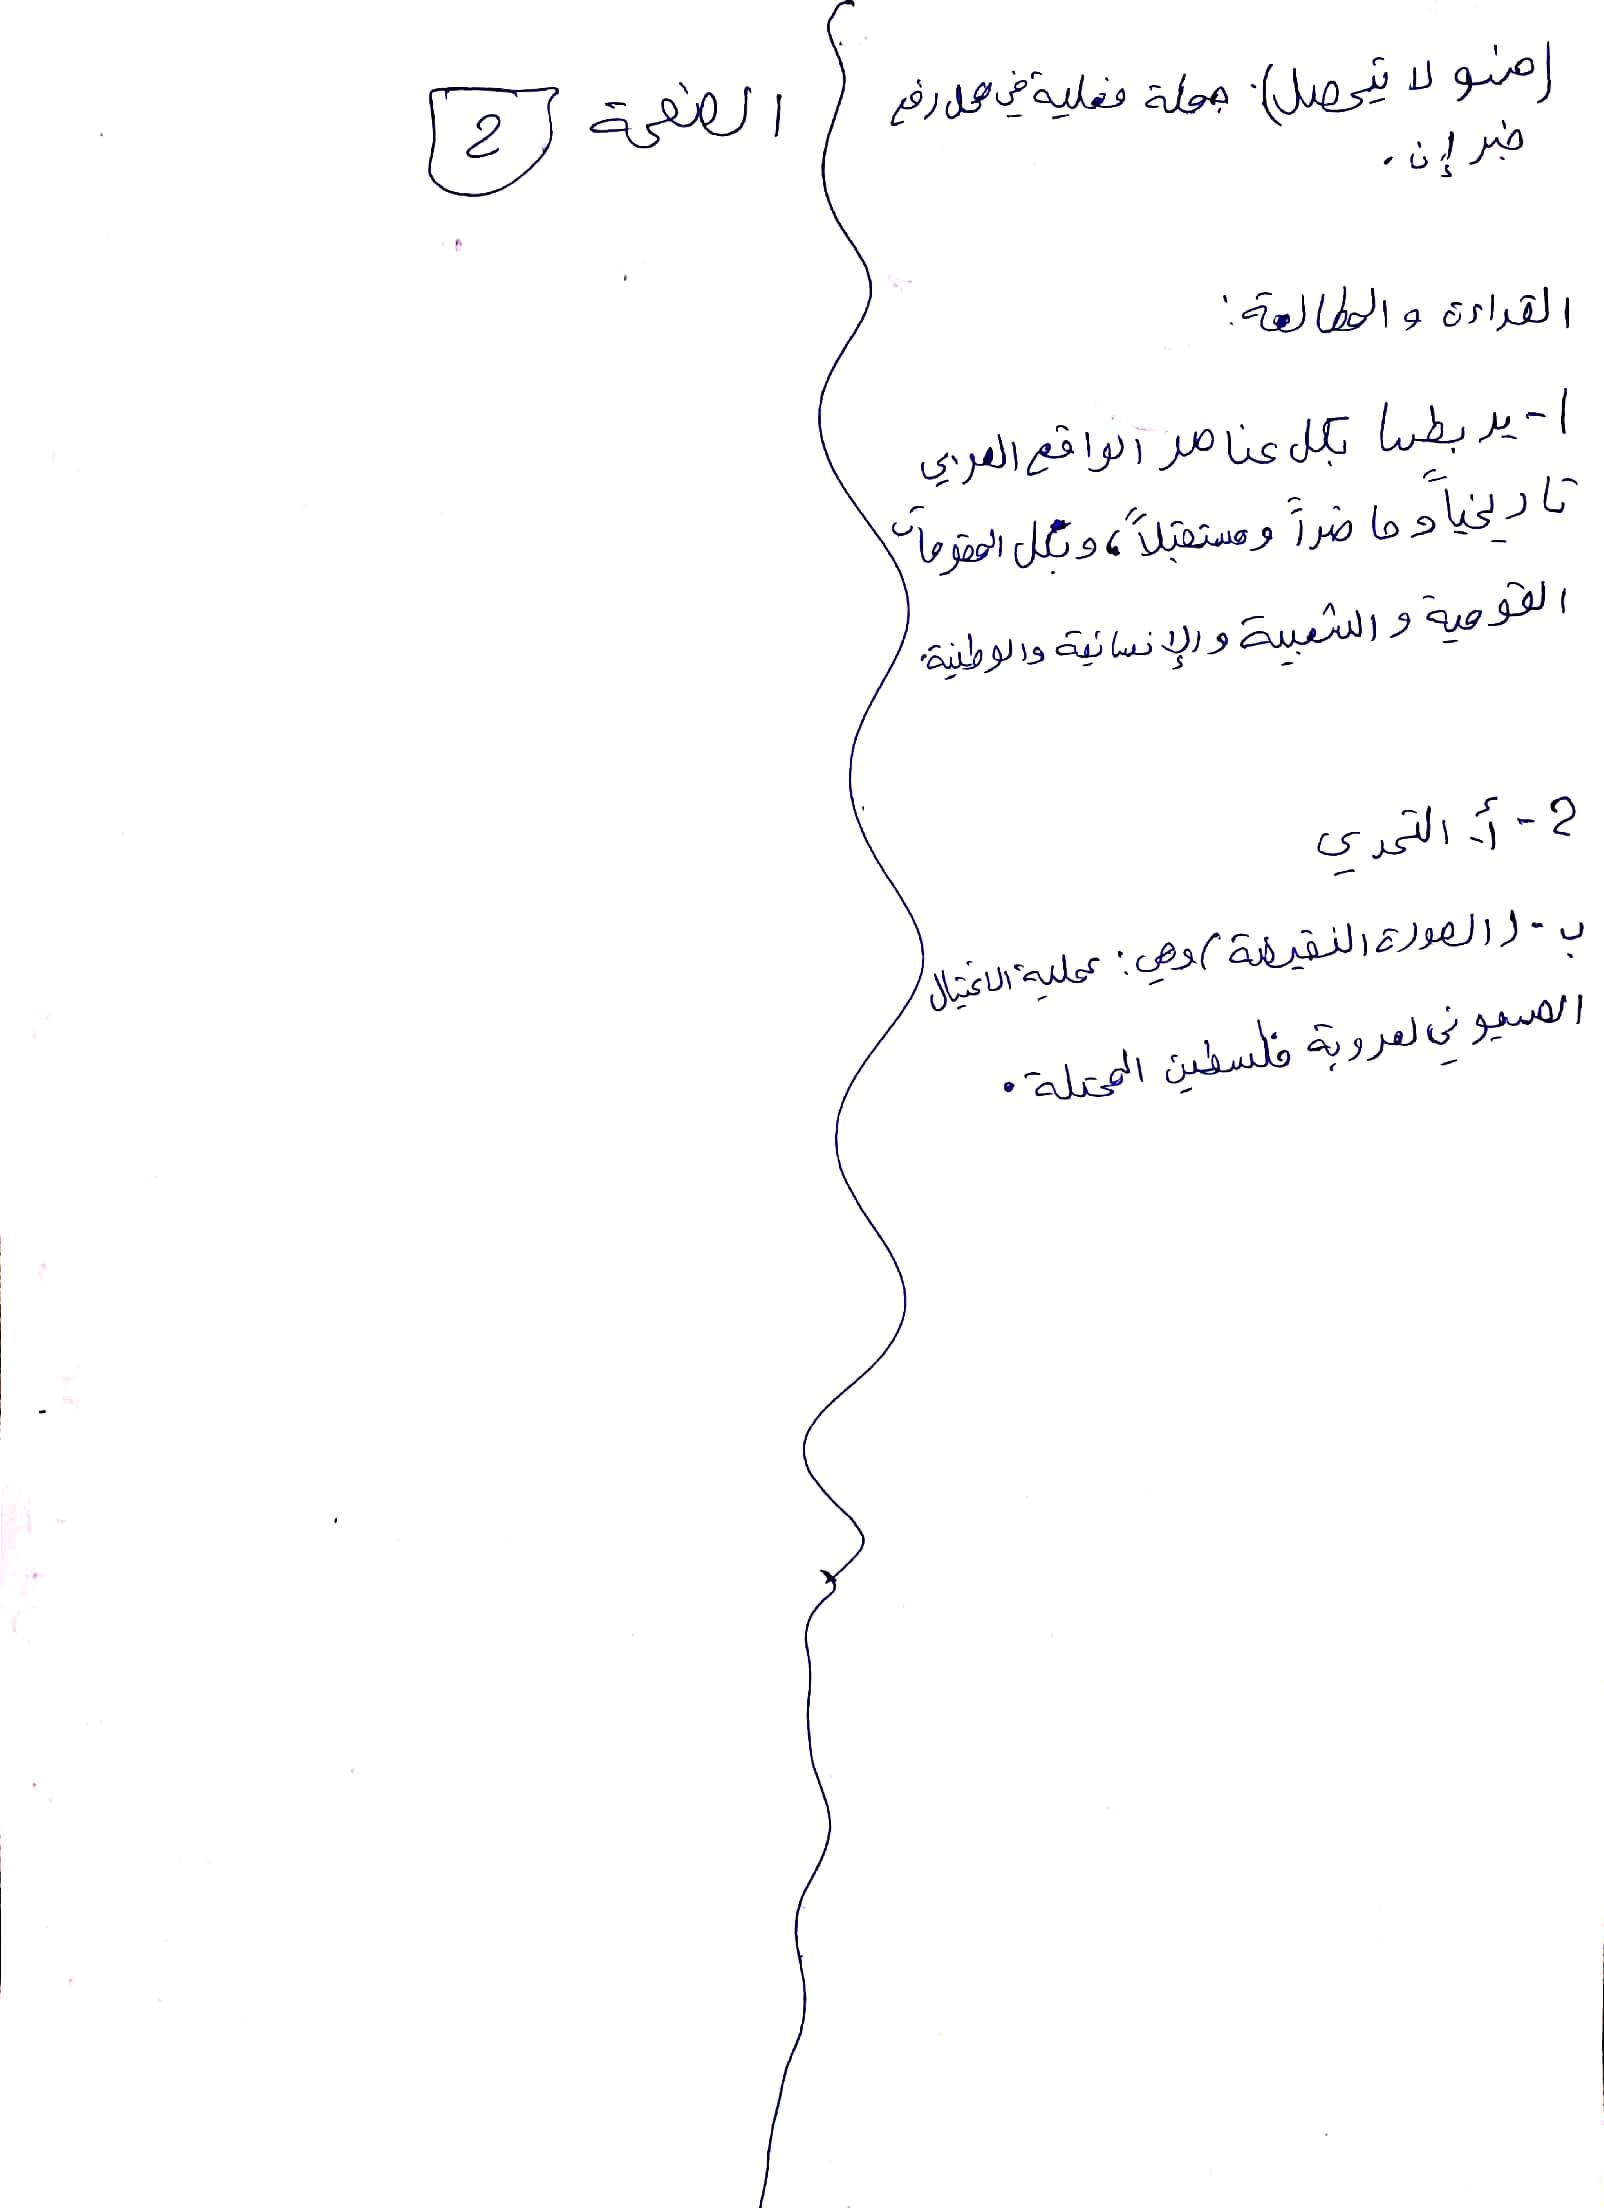 (صنو لا يتحصل): جملة فعلية في محل رفع
خبر إن.
الصفحة 2
القراءة والمطالعة:
1- يربطها بكل عناصر الواقع العربي
تاريخياً وحاضراً ومستقبلاً، وبكل المقومات
القومية والشعبية والإنسانية والوطنية.
2- أ. التحدي
ب- (الصورة النقيضة) وهي: عملية الاغتيال
الصهيوني لعروبة فلسطين المحتلة.